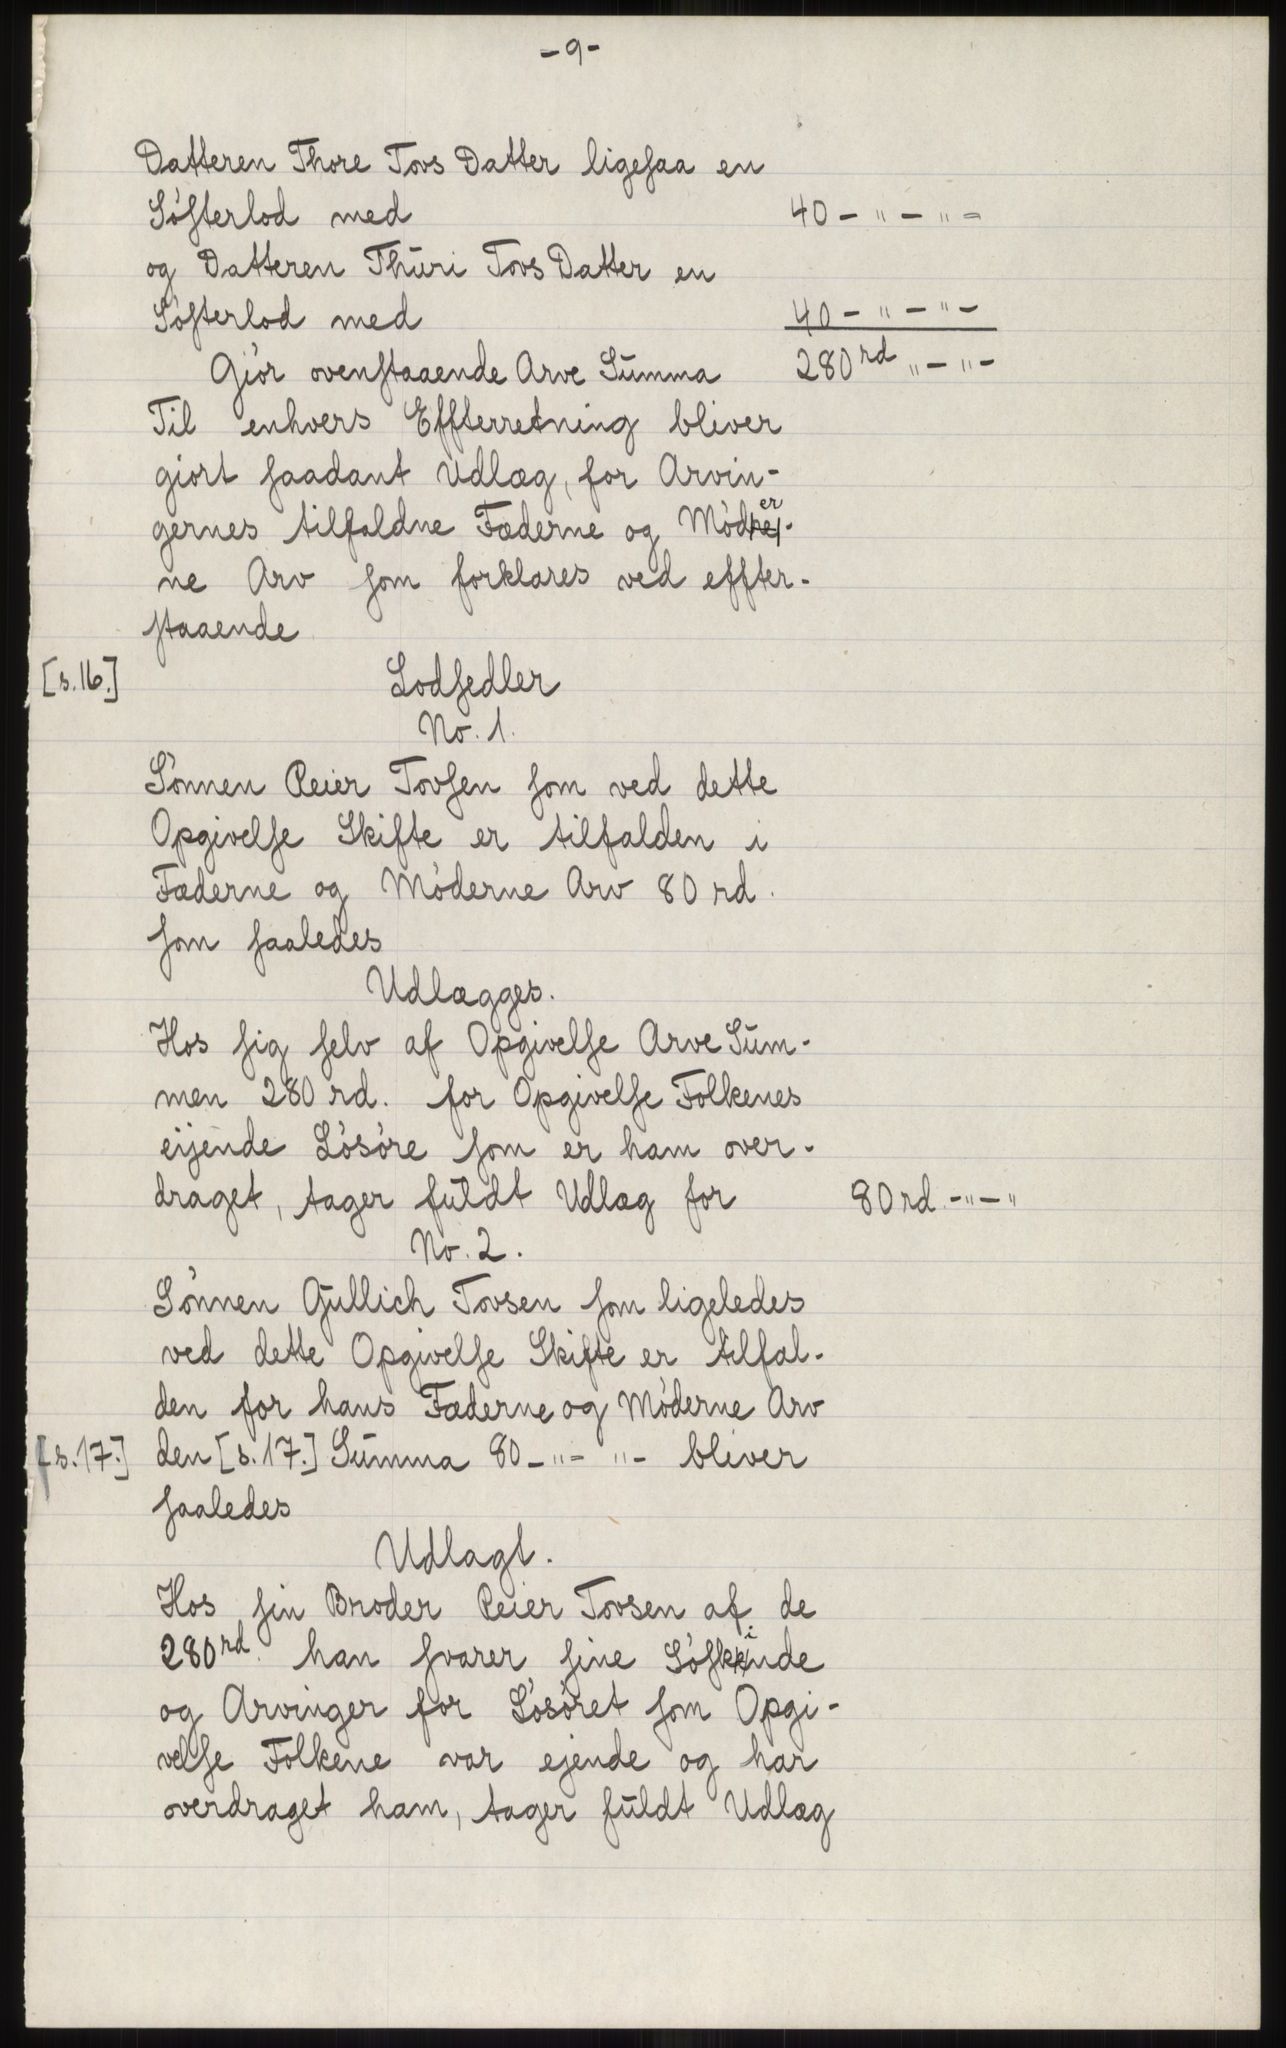 -9-
Datteren Thore Tovs Datter ligesaa en
Søsterlod med 40 - " - " -
og Datteren Thuri Tovs Datter en
Søsterlod med 40 - " - " -
Giör ovenstaaende Arve Summa 280 rd " - " -
Til enhvers Effterretning bliver
giort saadant Udlæg, for Arvin-
gernes tilfaldne Fæderne og Møder-
ne Arv som forklares ved effter-
staaende
[s.16.] Lodsedler
No. 1.
Sønnen Reier Tovsen som ved dette
Opgivelse Skifte er tilfalden i
Fæderne og Møderne Arv 80 rd.
som saaledes
Udlægges.
Hos sig selv af Opgivelse Arve Sum-
men 280 rd. for Opgivelse Folkenes
eijende Løsøre som er ham over-
draget, tager fuldt Udlæg for 80 rd. - " - "
No. 2.
Sønnen Gullich Tovsen som ligeledes
ved dette Opgivelse Skifte er tilfal-
den for hans Fæderne og Møderne Arv
[s.17.] den [s.17.] Summa 80 - " - " - bliver
saaledes
Udlagt.
Hos sin Broder Reier Tovsen af de
280 rd. han svarer sine Søskinde
og Arvinger for Løsøret som Opgi-
velse Folkene var ejende og har
overdraget ham, tager fuldt Udlæg